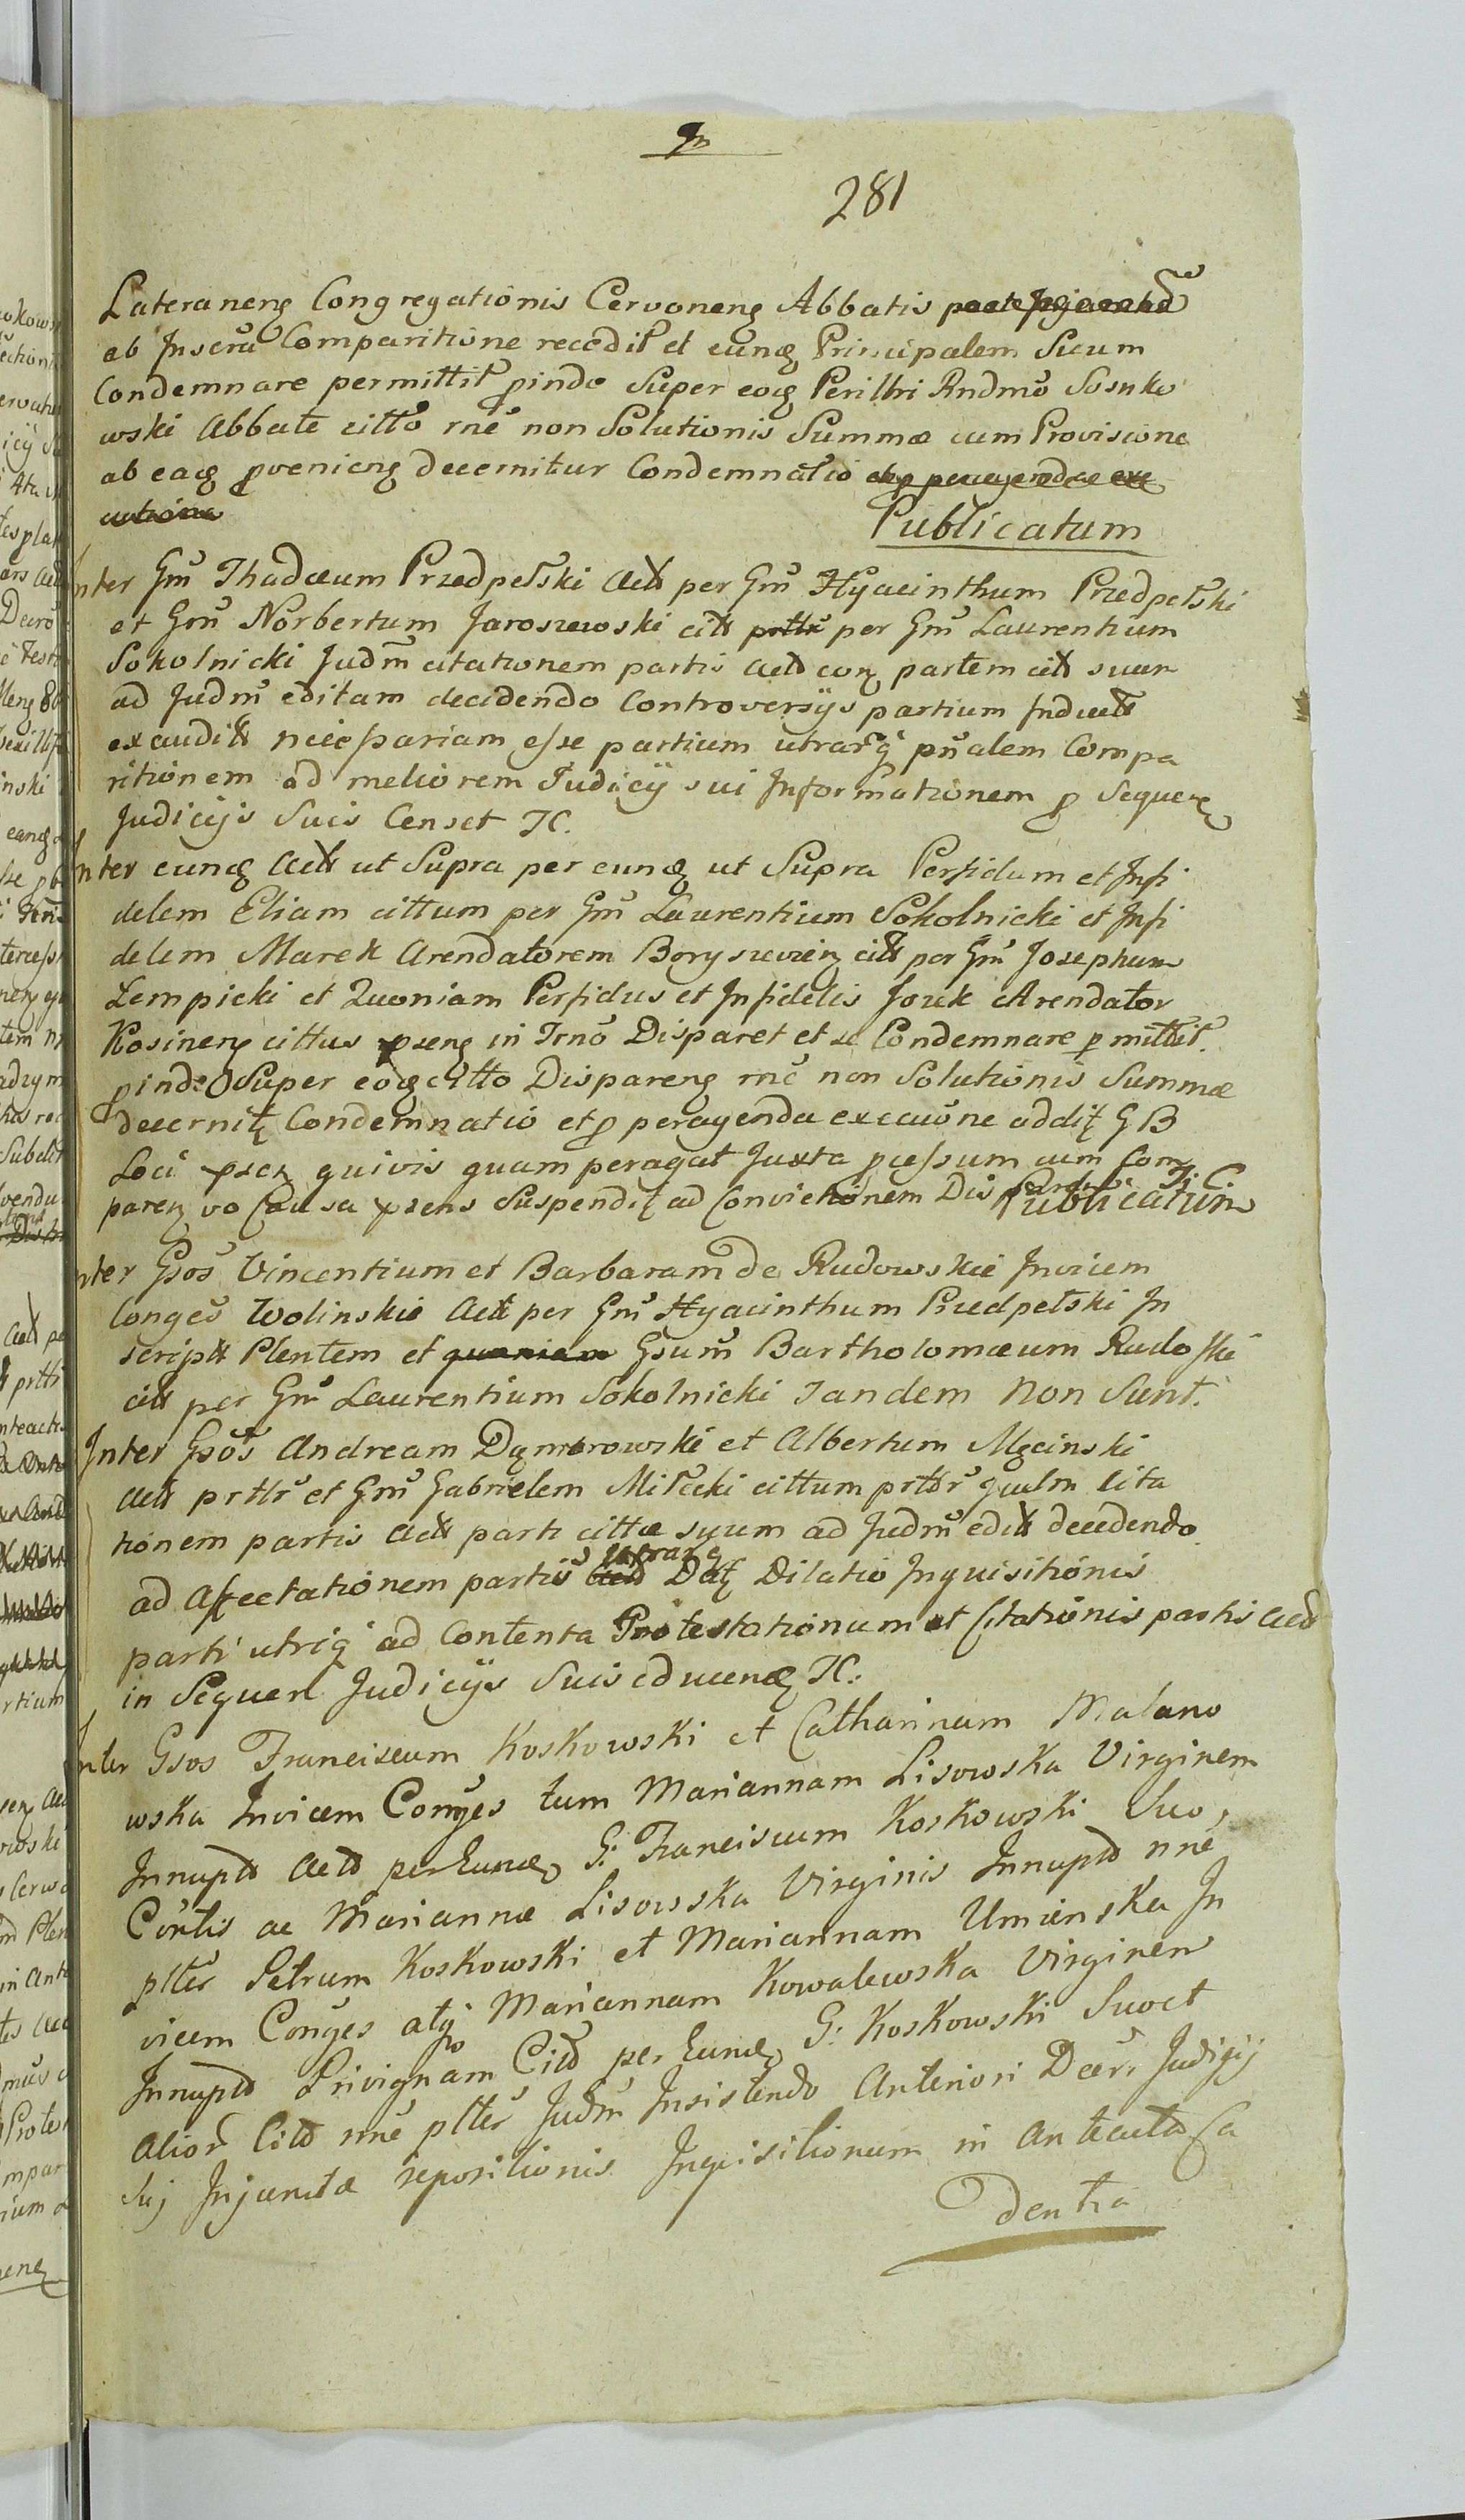 In
281
Lateranenʒ Congregationis Cervonenʒ Abbatis
ab Inscrā Comparitione recedit et eundʒ Principalem Suum
Condemnare permittit pinde Super eodʒ Perillri Rndmo Sosnko
wski Abbate citto rnē non Solutionis Summæ cum Provisione
ab eadʒ pvenienʒ decernitur Condemnatio et p peragenda exe
cutione
Publicatum
Inter Gm̄ Thadæum Przedpełski Actt per Gm̄ Hyacinthum Przedpełski
et Gm̄ Norbertum Jaroszewski citt prttr per Gm̄ Laurentium
Sokolnicki Judm̄ citationem partis actt conʒ partem citt suum
ad Judm̄ editam decidendo Controversijs partium Inductt
exauditt necessariam esse partium utrarq pnalem Compa
ritionem ad meliorem Judicij sui Informationem p Sequenʒ
Judicijs Suis Censet JC.
Inter eundʒ Actt ut Supra per eundʒ ut Supra Perfidum et Infi
delem Eliam cittum per Gm̄ Laurentium Sokolnicki et Infi
delem Marek Arendatorem Boryszevienʒ citt per Gm̄ Josephum
Lempicki et Quoniam Perfidus et Infidelis Jouk Arendator
Kosinenʒ cittus psenʒ in Trnō Disparet et se Condemnare pmittit.
pinde Super eodʒ citto Disparenʒ rnē non Solutionis Summæ
decernitʒ Condemnatio et p peragenda execuōne additʒ GB
Loci psenʒ quivis quam peragat Juxta pcessum cum Com
parenʒ vo Causa psens Suspenditʒ ad Convictionem Disparenʒ JC.
Publicatum
Inter Gsos Vincentium et Barbaram de Rudowskie Invicem
Conges Wolinskie Actt per Gm̄ Hyacinthum Przedpełski In
scriptt Plentem et quoniam Gsum Bartholomæum Rudoski
citt per Gm̄ Laurentium Sokolnicki Tandem Non Sunt.
Inter Gsos Andream Dąmbrowski et Albertum Mącinski
Actt prttr et Gm̄ Gabrielem Miłecki cittum prttr qualm Cita
tionem partis Actt parti cittæ suum ad Judm̄ editt decidendo
ad Affectationem partis utrarq Datʒ Dilatio Inquisitionis
parti utriq ad Contenta Protestationum et Citationis partis Actt
in Sequen Judicijs Suis educendʒ JC:
Inter Gsos Franciscum Koskowski et Catharinam Malano
wska Invicem Conges tum Mariannam Lisowska Virginem
Innuptt Actt per Eundʒ G: Franciscum Koskowski Suo,
Cortis ac Mariannæ Lisowska Virginis Innuptt nne
plter Petrum Koskowski et Mariannam Uminska In
vicem Conges atq Mariannam Kowalewska Virginem
Innuptt Privignam Citt per Eundʒ G: Koskowski Suo et
Alior Citt nne plter Judm Insistendo Anteriori Decr. Judicij
Sui Injunctæ repositionis Inquisitionum in anteacta Ca
dentia